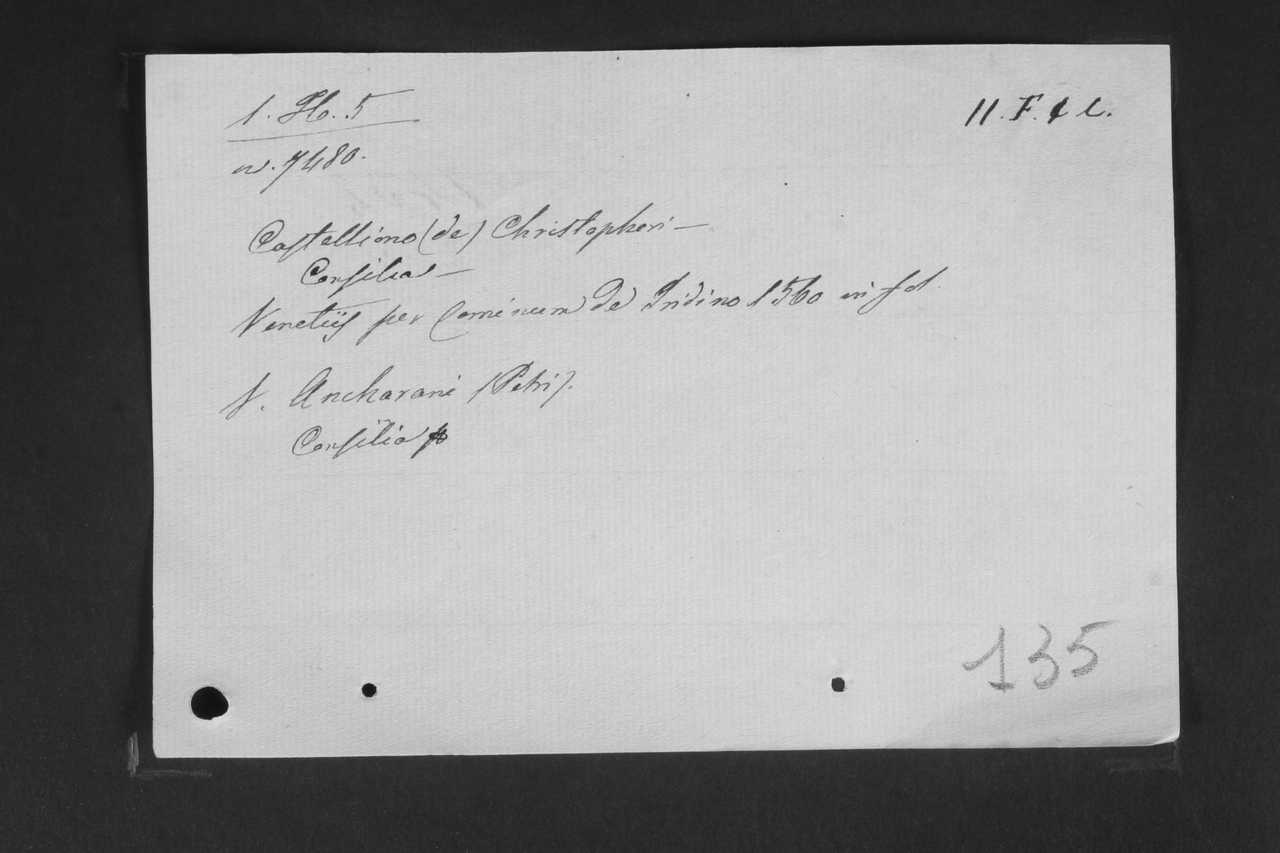 1. H. 5
n. 7480.
11. F. 1 c.
Castelliono (de) Christophori —
Consilia —
Venetiis per Cominum de Tridino 1560 in fol.
V. Ancharani (Petri).
Consilia
135